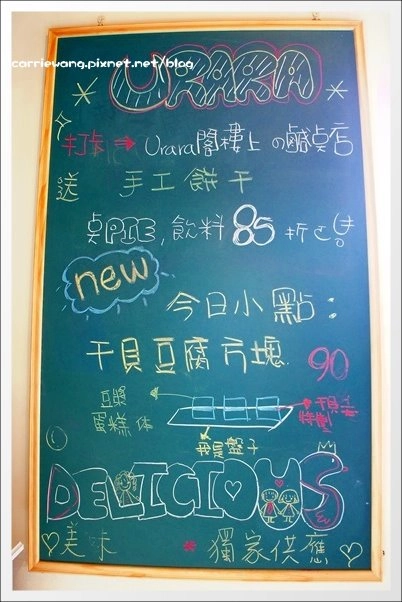 carriewang.pixnet.net/blog
URARA
打卡 ⇒ Urara閣樓上の鹹点店
送 手工餅干
点PIE,飲料85折
new
今日小點:
干貝豆腐方塊 90
豆漿
蛋糕体
特製
我是盤子
DELICIOUS
美味 * 獨家供應